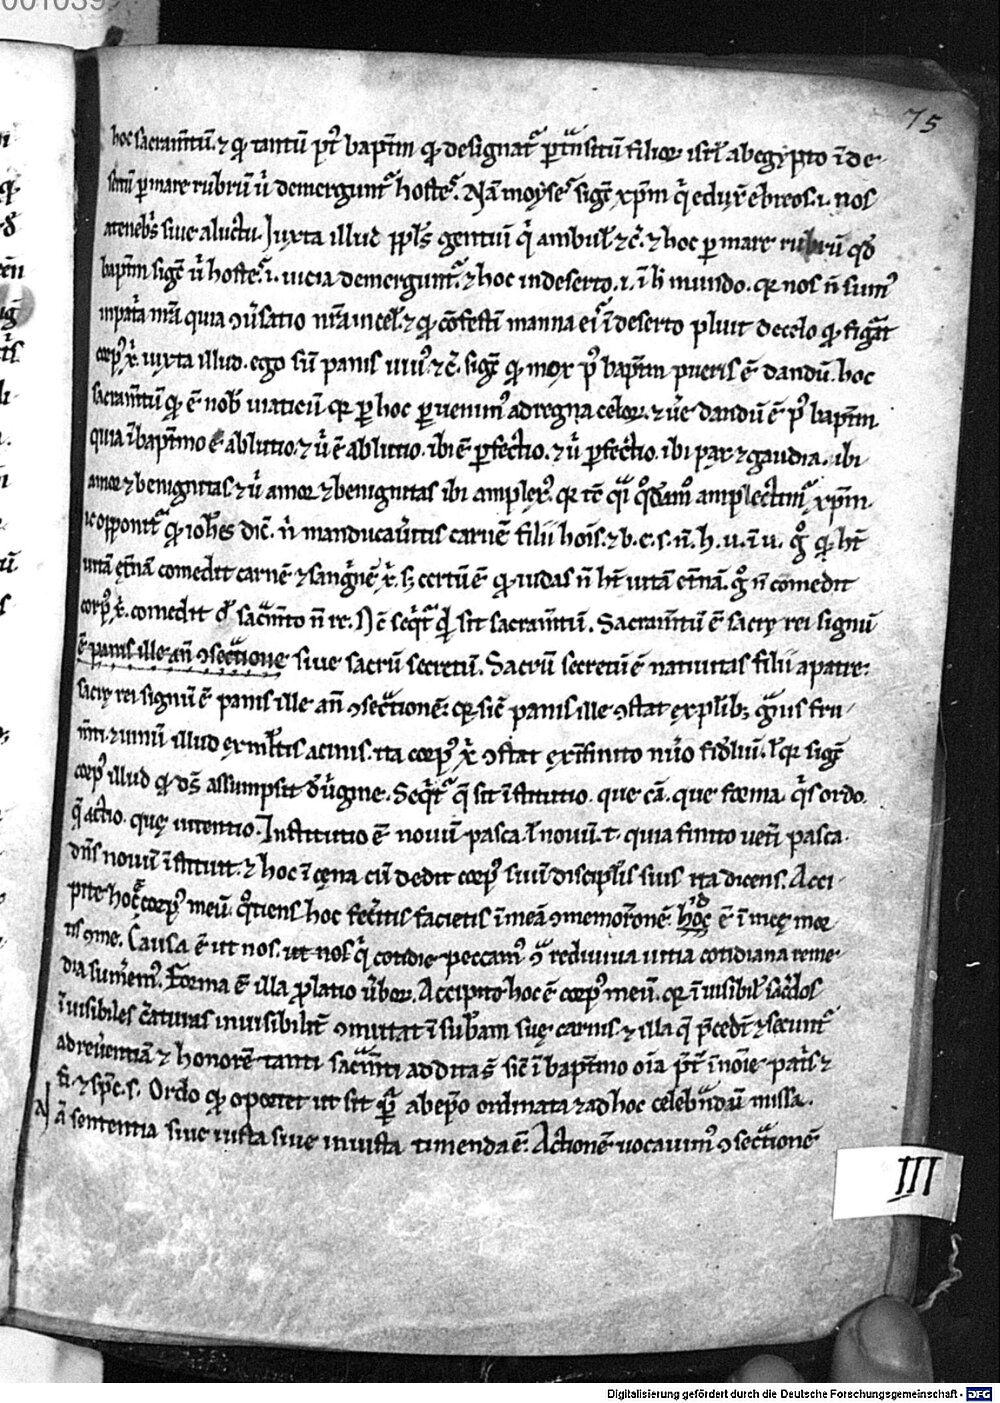 001039
75
hoc sacram̄tū. ⁊ qꝛ tantū p̄t bapt̄m qꝛ designat᷒ ꝑ t̄nsitū filioꝝ isrl̄ ab egypto ī de-
sertū ꝑ mare rubrū ū demergunt᷒ hostes. Nā moyses sigt̄ xp̄m q̇ eduẋ ebreos .i. nos
a tenebs̄ siue a luctu. Iuxta illud ppl̄s gentiū q̇ ambul̄ ⁊c̄. ⁊ hoc ꝑ mare rubrū qd̄
bapt̄m sigt̄ ū hostes .i. uicia demergunt᷒. ⁊ hoc in deserto .i. ī h̄ mundo. qꝛ nos n̄ sum᷒
in patͥa nr̄a quia ꝯūsatio nr̄a in cel̄. ⁊ qꝛ cōfestī manna eis ī deserto pluit de celo qꝛ figāt
corp᷒ x̄. iuxta illud. ego sū panis uiu᷒ ⁊c̄. sigt̄ qꝛ mox p᷒ bapt̄m pueris ē dandū. hoc
sacram̄tū qꝛ ē nob̄ uiaticū qꝛ ꝑ hoc ꝑuenim᷒ ad regna celoꝝ. ⁊ ūe dandū ē p᷒ bapt̄m.
quia ī bapt̄mo ē ablutio. ⁊ ū ē ablutio. ibi ē ꝑfectio. ⁊ ū ꝑfectio. ibi pax ⁊ gaudia. ibi
amor ⁊ benignitas ⁊ ū amor ⁊ benignitas ibi amplex᷒. qꝛ tē qͣi qͦdāmͦ amplectim᷒ xp̄m.
opponit᷒ qꝛ ioh̄es dic̄. n̄ manducaūitis carnē filii hoīs. ⁊ b. e. s. n̄. h. u. ī u. gͦ qͥ ht̄
uitā et̄nā comedit carnē ⁊ sangͥnē x̄. sꝫ certū ē qꝛ iudas n̄ ht̄ uitā et̄nā. gͦ n̄ comedit
corp᷒ x̄. comedit dͥ sac̄m̄to n̄ re. Nc̄ seqͥt᷒ qͥd sit sacram̄tū. Sacram̄tū ē sacrę rei signū
ē panis ille añ ꝯsec̄tione siue sacrū secretū. Sacrū secretū ē natiuitas filii a patre.
sacrę rei signū ē panis ille añ ꝯsec̄tionē. qꝛ sic̄ panis ille ꝯstat ex plibꝫ gͣnis fru-
m̄ti. ⁊ uinū illud ex ml̄tis acinis. ita corp᷒ x̄ ꝯstat ex ifinito nūo fidl̄iū. l̄ qꝛ sigt̄
corp᷒ illud qꝛ ds̄ assumpsit d̄ ūgine. Seqͥt᷒ q̄ sit īstitutio. que cā. que forma. qͥs ordo.
q̄ actio. quę intentio. Institutio ē nouū pasca. l̄ nouū .t. quia finito ueti pasca.
dn̄s nouū īstituit. ⁊ hoc ī cęna cū dedit corp᷒ suū discipl̄is suis ita dicens. Acci-
pite hoc ē corp᷒ meū. qͦtiens hoc fec̄itis facietis ī meā ꝯmemor̄onē. hoc ē ī uicę mor
tis ꝯ me. Causa ē ut nos. ut nos q̇ cotidie peccam᷒ ꝯͣ rediuiua uitia cotidiana reme-
dia sumem᷒. Forma ē illa ꝓlatio ūboꝝ. Accipite hoc ē corp᷒ meū. qꝛ īuisibil᷒ sac̄dos
īuisibiles c̄aturas inuisibilit̄ ꝯmutat ī subam suę carnis. ⁊ illa q̄ p̄cedt̄ ⁊ secunt᷒
ad reūentiā ⁊ honorē tanti sac̄m̄ti addita s̄. sic̄ ī bapt̄mo oīa p̄t ī noīe patͥs ⁊
fi. ⁊ sp̄c. s. Ordo qꝛ oportet ut sit pͥͣ ab ep̄o ordinata ⁊ ad hoc celebͣndū missā.
Nā sententia siue iusta siue iniusta timenda ē. Actionē uocauim᷒ ꝯsec̄tionē
III
Digitalisierung gefördert durch die Deutsche Forschungsgemeinschaft - DFG